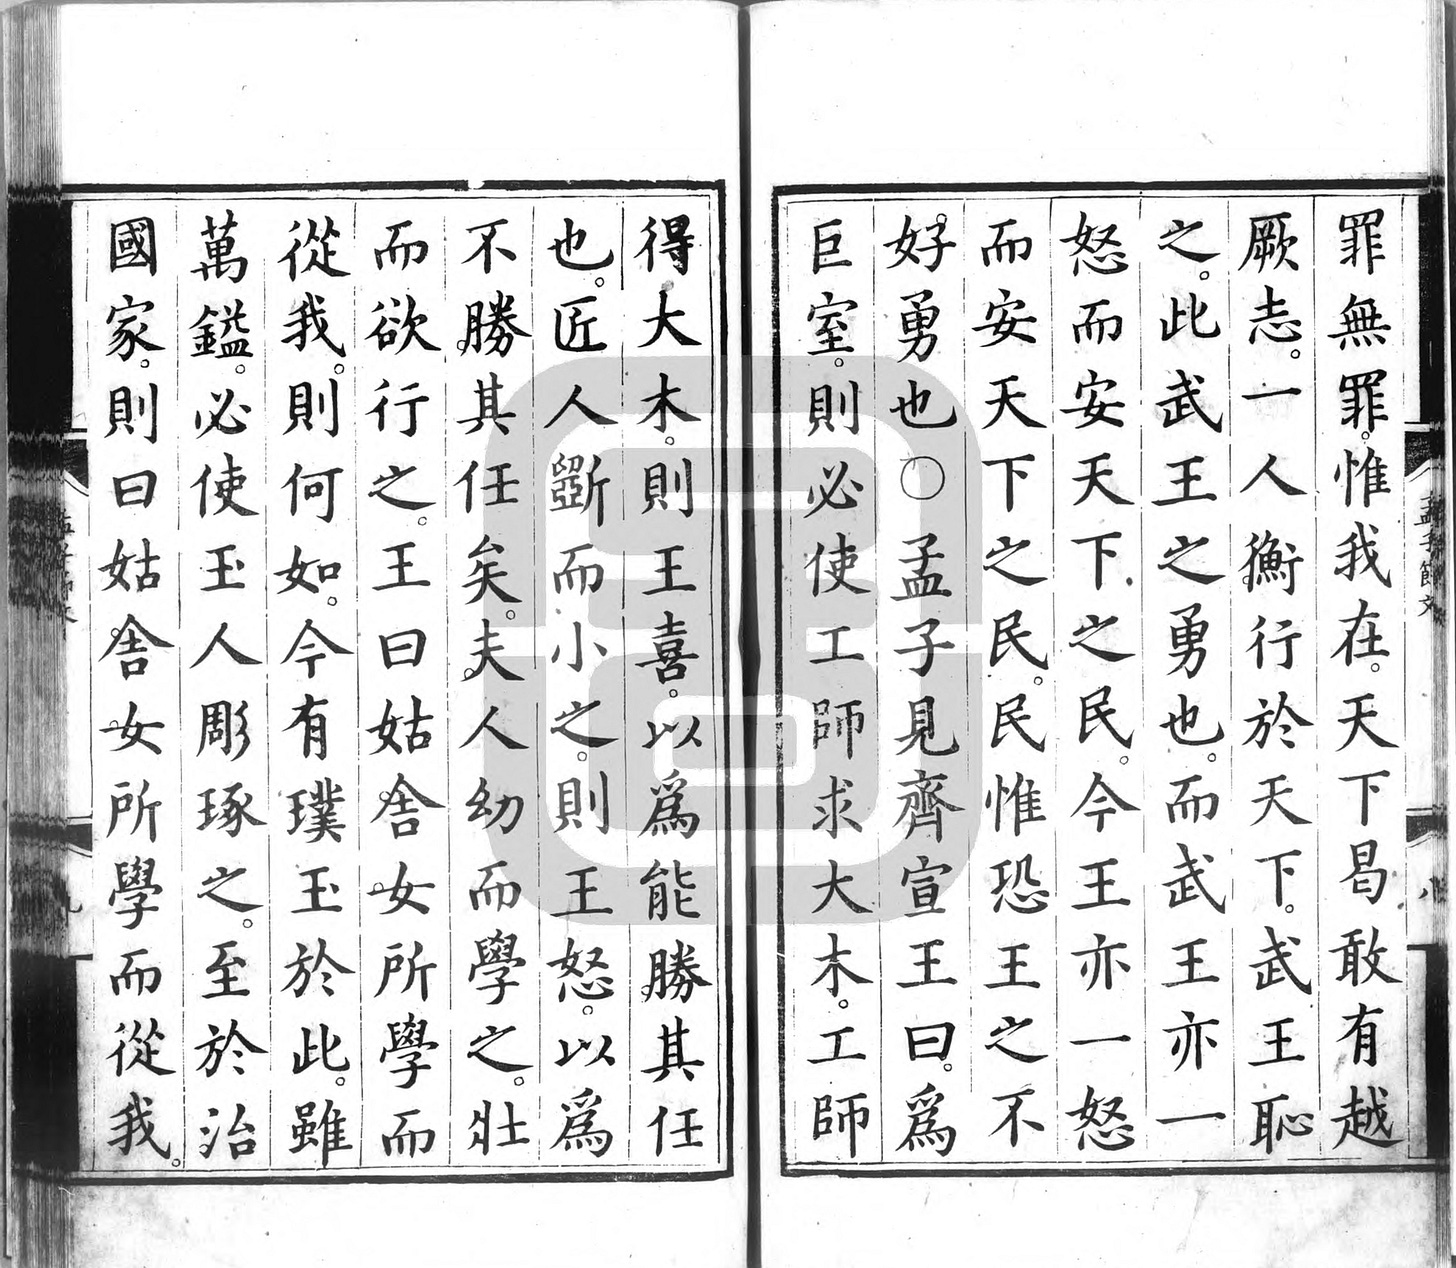 罪無罪。惟我在。天下曷敢有越
厥志。一人衡行於天下。武王恥
之。此武王之勇也。而武王亦一
怒而安天下之民。今王亦一怒
而安天下之民。民惟恐王之不
好勇也○孟子見齊宣王曰。爲
巨室。則必使工師求大木。工師
得大木。則王喜。以爲能勝其任
也。匠人斲而小之。則王怒。以爲
不勝其任矣。夫人幼而學之。壯
而欲行之。王曰姑舍女所學而
從我。則何如。今有璞玉於此。雖
萬鎰。必使玉人彫琢之。至於治
國家。則曰姑舍女所學而從我。
孟子節文
八